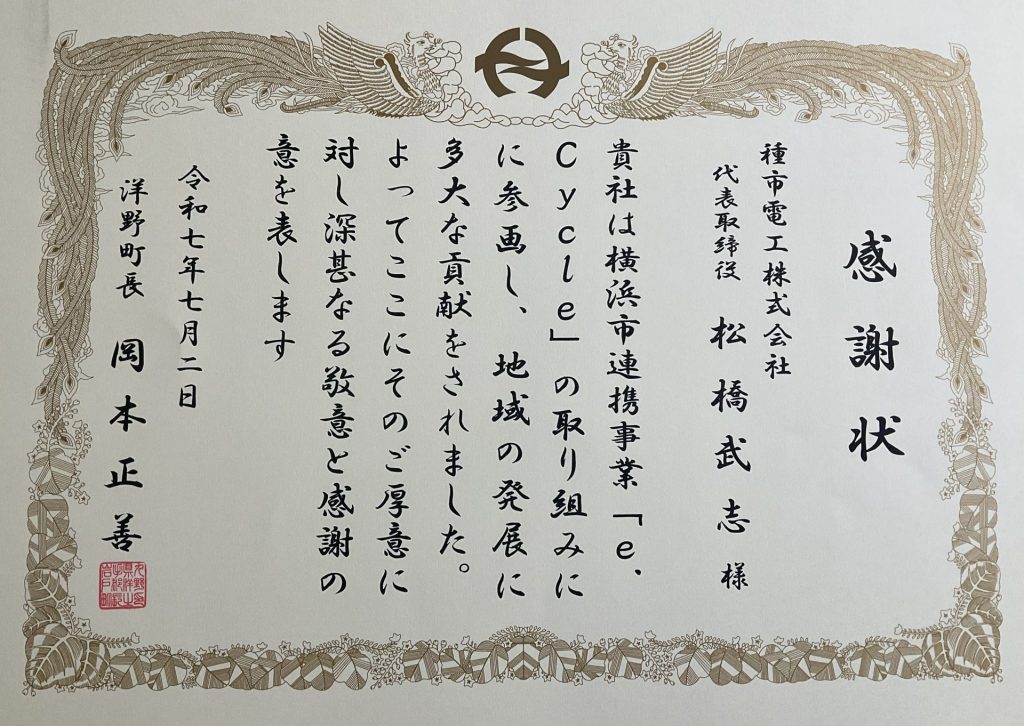 感謝状
種市電工株式会社
代表取締役 松橋武志 様
貴社は横浜市連携事業「e.
Cycle」の取り組みに
に参画し、地域の発展に
多大な貢献をされました。
よってここにそのご厚意に
対し深甚なる敬意と感謝の
意を表します
令和七年七月二日
洋野町長 岡本正善